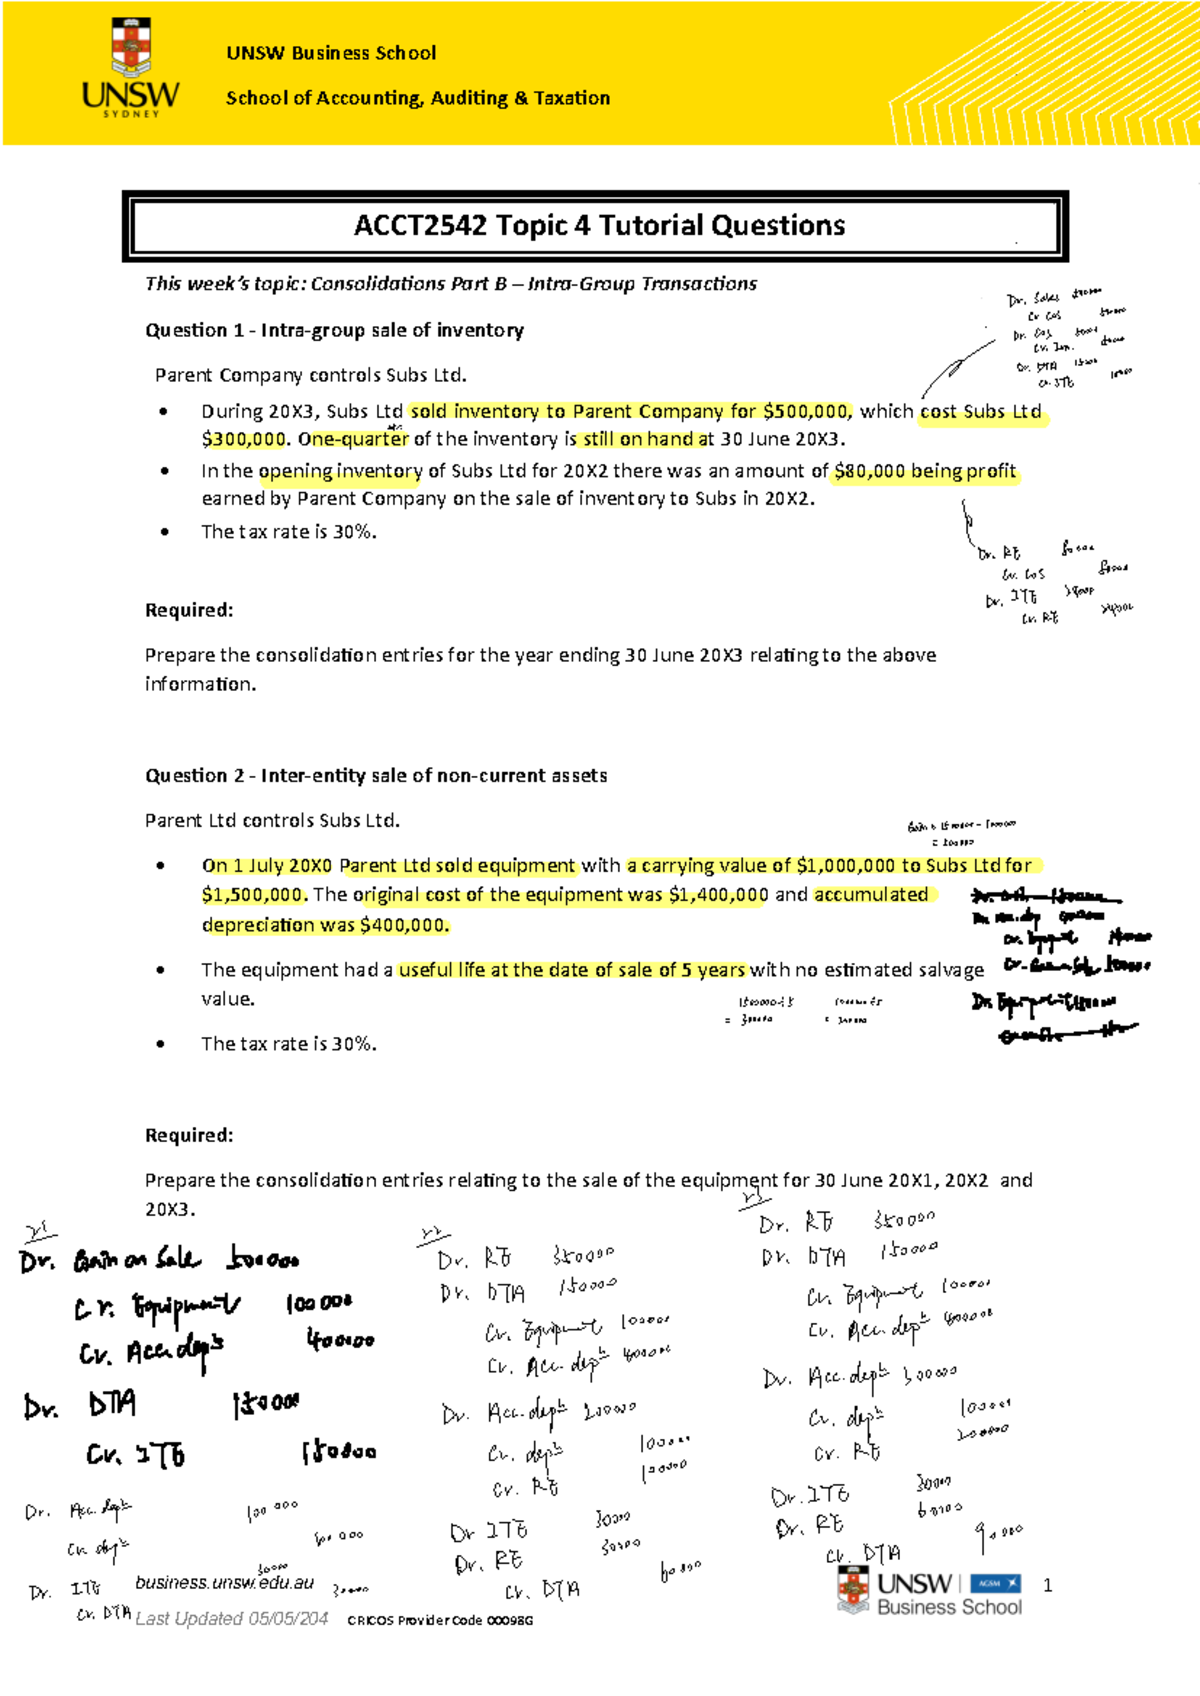 UNSW Business School
UNSW
SYDNEY
School of Accounting, Auditing & Taxation
ACCT2542 Topic 4 Tutorial Questions
This week's topic: Consolidations Part B – Intra-Group Transactions
Question 1 - Intra-group sale of inventory
Dr. Sales
Cr COS
Dr. COS
Dr. DTA
Cr. ITE
Parent Company controls Subs Ltd.
• During 20X3, Subs Ltd sold inventory to Parent Company for $500,000, which cost Subs Ltd
$300,000. One-quarter of the inventory is still on hand at 30 June 20X3.
• In the opening inventory of Subs Ltd for 20X2 there was an amount of $80,000 being profit
earned by Parent Company on the sale of inventory to Subs in 20X2.
• The tax rate is 30%.
Dr. RE 80000
Cr. COS 80000
Dr. ITE 24000
Cr. RE 24000
Required:
Prepare the consolidation entries for the year ending 30 June 20X3 relating to the above
information.
Question 2 - Inter-entity sale of non-current assets
Parent Ltd controls Subs Ltd.
• On 1 July 20X0 Parent Ltd sold equipment with a carrying value of $1,000,000 to Subs Ltd for
$1,500,000. The original cost of the equipment was $1,400,000 and accumulated
depreciation was $400,000.
• The equipment had a useful life at the date of sale of 5 years with no estimated salvage
value.
= 300000
• The tax rate is 30%.
Required:
Prepare the consolidation entries relating to the sale of the equipment for 30 June 20X1, 20X2 and
20X3.
Dr. Gain on Sale 500000
Cr. Equipment 100000
Cr. Acc. dep't 400000
Dr. DTA 150000
Cr. ITE 150000
Dr. Acc. dep't 100 000
Cr. dep't 100 000
Dr. ITE 30000
Cr. DTA 30000
Dr. RE 350000
Dr. DTA 150000
Cr. Equipment 100000
Cr. Acc. dep't 400000
Dr. Acc. dep't 200000
Cr. dep't 100000
Cr. RE 100000
Dr ITE 30000
Dr. RE 30000
Cr. DTA 60000
Dr. RE 350000
Dr. DTA 150000
Cr. Equipment 100000
Cr. Acc. dep't 400000
Dr. Acc. dep't 300000
Cr. dep't 100000
Cr. RE 200000
Dr. ITE 30000
Dr. RE 60000
Cr. DTA 90000
business.unsw.edu.au
Last Updated 05/05/204 CRICOS Provider Code 00098G
UNSW AGSM
Business School
1